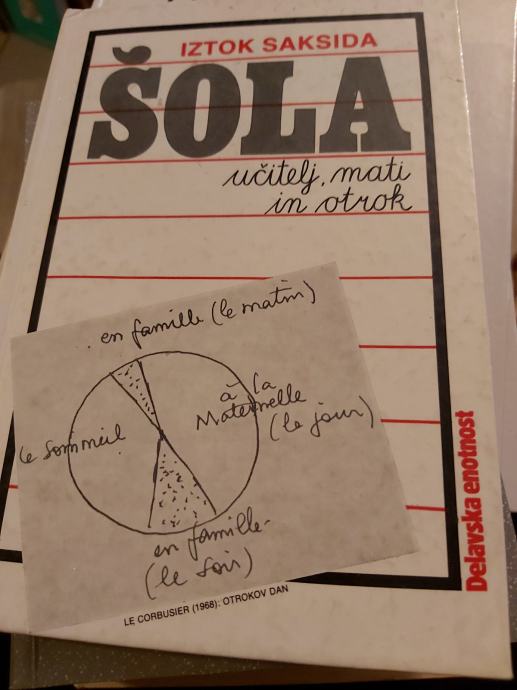 IZTOK SAKSIDA
ŠOLA
učitelj, mati
in otrok
en famille (le matin)
à la
Maternelle
(le jour)
le sommeil
en famille
(le soir)
LE CORBUSIER (1968): OTROKOV DAN
Delavska enotnost